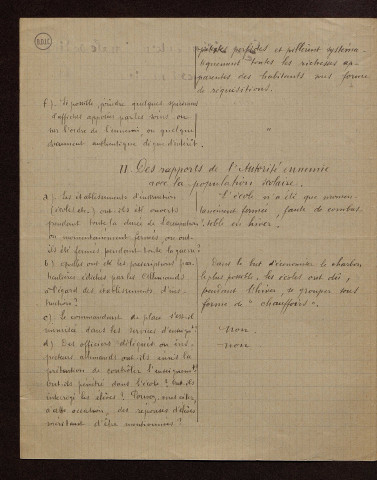 perfides et pillèrent systéma-
tiquement toutes les richesses ap-
parentes des habitants sous forme
de réquisitions.
f). Si possible, joindre quelques spécimens
d'affiches apposées par les soins ou
sur l'ordre de l'ennemi, ou quelque
document authentique digne d'intérêt.
"
II. Des rapports de l'Autorité ennemie
avec la population scolaire.
a). Les établissements d'instruction
(écoles, etc.) ont-ils été ouverts
pendant toute la durée de l'occupation
ou momentanément fermés, ou ont-
ils été fermés pendant toute la guerre?
L'école n'a été que momen-
tanément fermée, faute de combus-
tible en hiver.
b) quelles ont été les prescriptions par-
ticulières édictées par les Allemands
à l'égard des établissements d'ins-
truction?
Dans le but d'économiser le charbon
le plus possible, les écoles ont dû,
pendant l'hiver, se grouper sous
forme de "chauffoirs".
c). Le commandant de place s'est-il
immiscé dans les services d'enseigt?
non
d) Des officiers délégués ou ins-
pecteurs allemands ont-ils émis la
prétention de contrôler l'enseignemt?
ont-ils pénétré dans l'école? ont-ils
interrogé les élèves? Pouvez-vous citer,
à cette occasion, des réponses d'élèves
méritant d'être mentionnées?
non